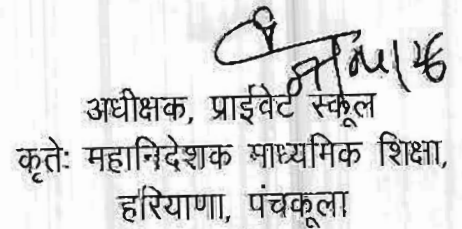 अधीक्षक, प्राईवेट स्कूल
कृतेः महानिदेशक माध्यमिक शिक्षा,
हरियाणा, पंचकूला